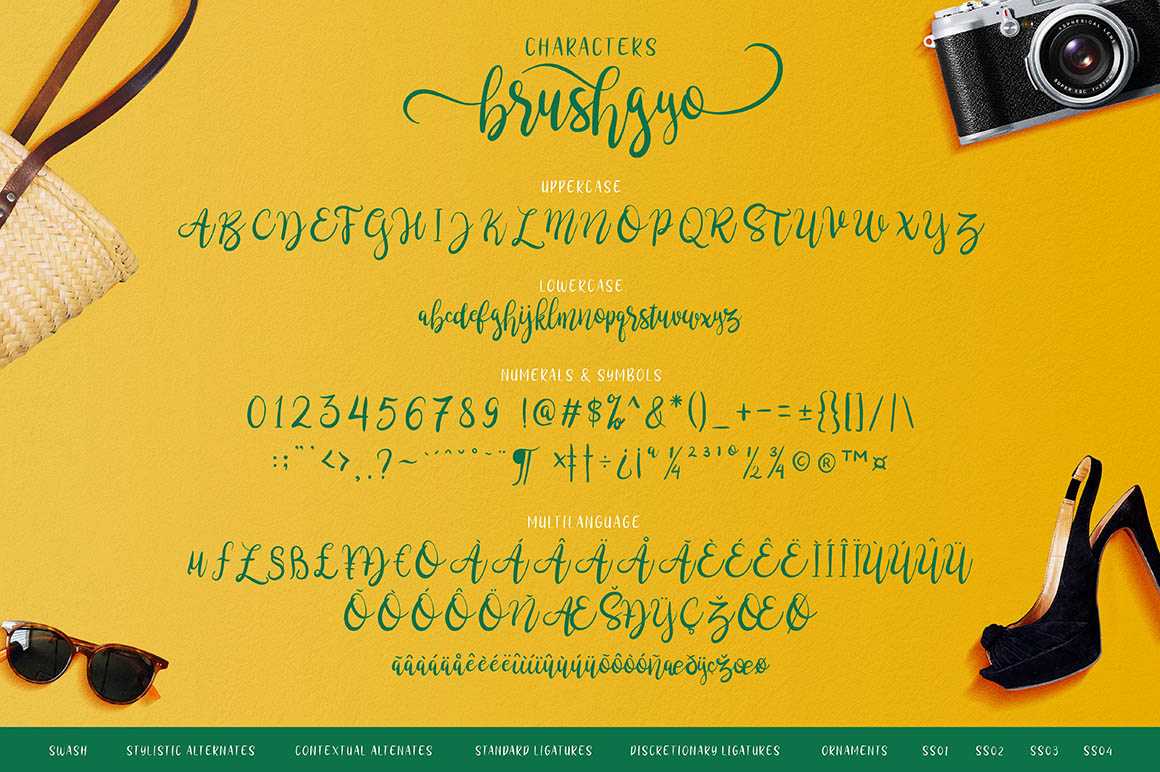 CHARACTERS
brushgyo
UPPERCASE
A B C D E F G H I J K L M N O P Q R S T U V W X Y Z
LOWERCASE
abcdefghijklmnopqrstuvwxyz
NUMERALS & SYMBOLS
0123456789 !@#$%^&*()_+-=±{}[]/|\
:;"'<>,.?~`´^˘°~¨¶×‡†÷¿¡ª¼²³¹º½¾©®™¤
MULTILANGUAGE
µƒ£€ÒÀÁÂÄÅÃÈÉÊËÌÍÎÏÙÚÛÜ
ÕÒÓÔÖÑÆŠÐŸÇŽŒØ
ãâàáäåêèéëîìíïûùúüõôöòóñæðÿçžœø
SWASH
STYLISTIC ALTERNATES
CONTEXTUAL ALTENATES
STANDARD LIGATURES
DISCRETIONARY LIGATURES
ORNAMENTS
SS01
SS02
SS03
SS04
ASPHERICAL LENS
SUPER EBC